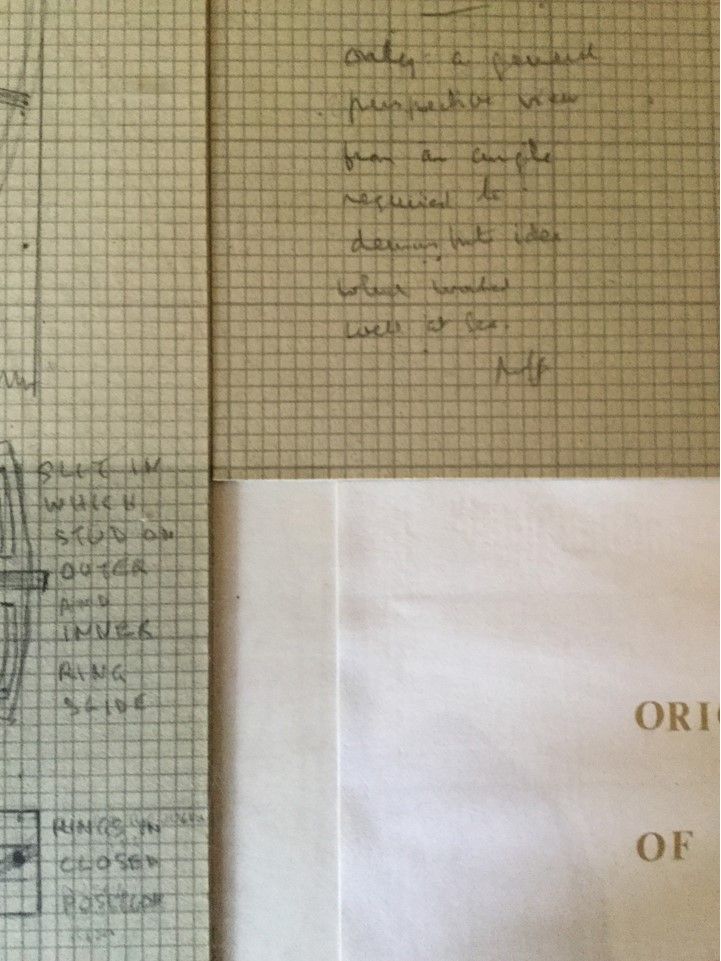 only a general
perspective view
from an angle
required to
idea
when worked
well at sea.
SLIT IN
WHICH
STUD ON
OUTER
AND
INNER
RING
SLIDE
RINGS IN
CLOSED
POSITION
ORIG
OF